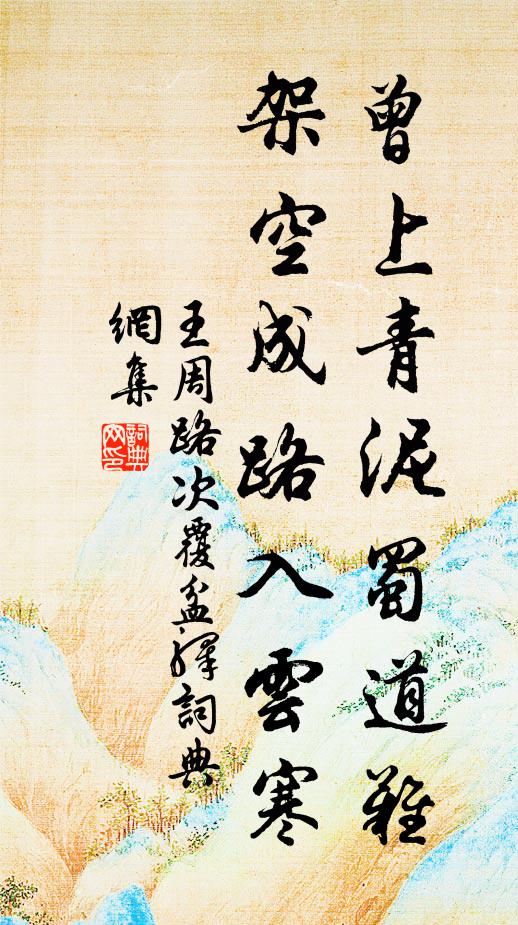 曾上青泥蜀道難
架空成路入雲寒
王周路次覆盆驛詞典
網集
詞典
网印